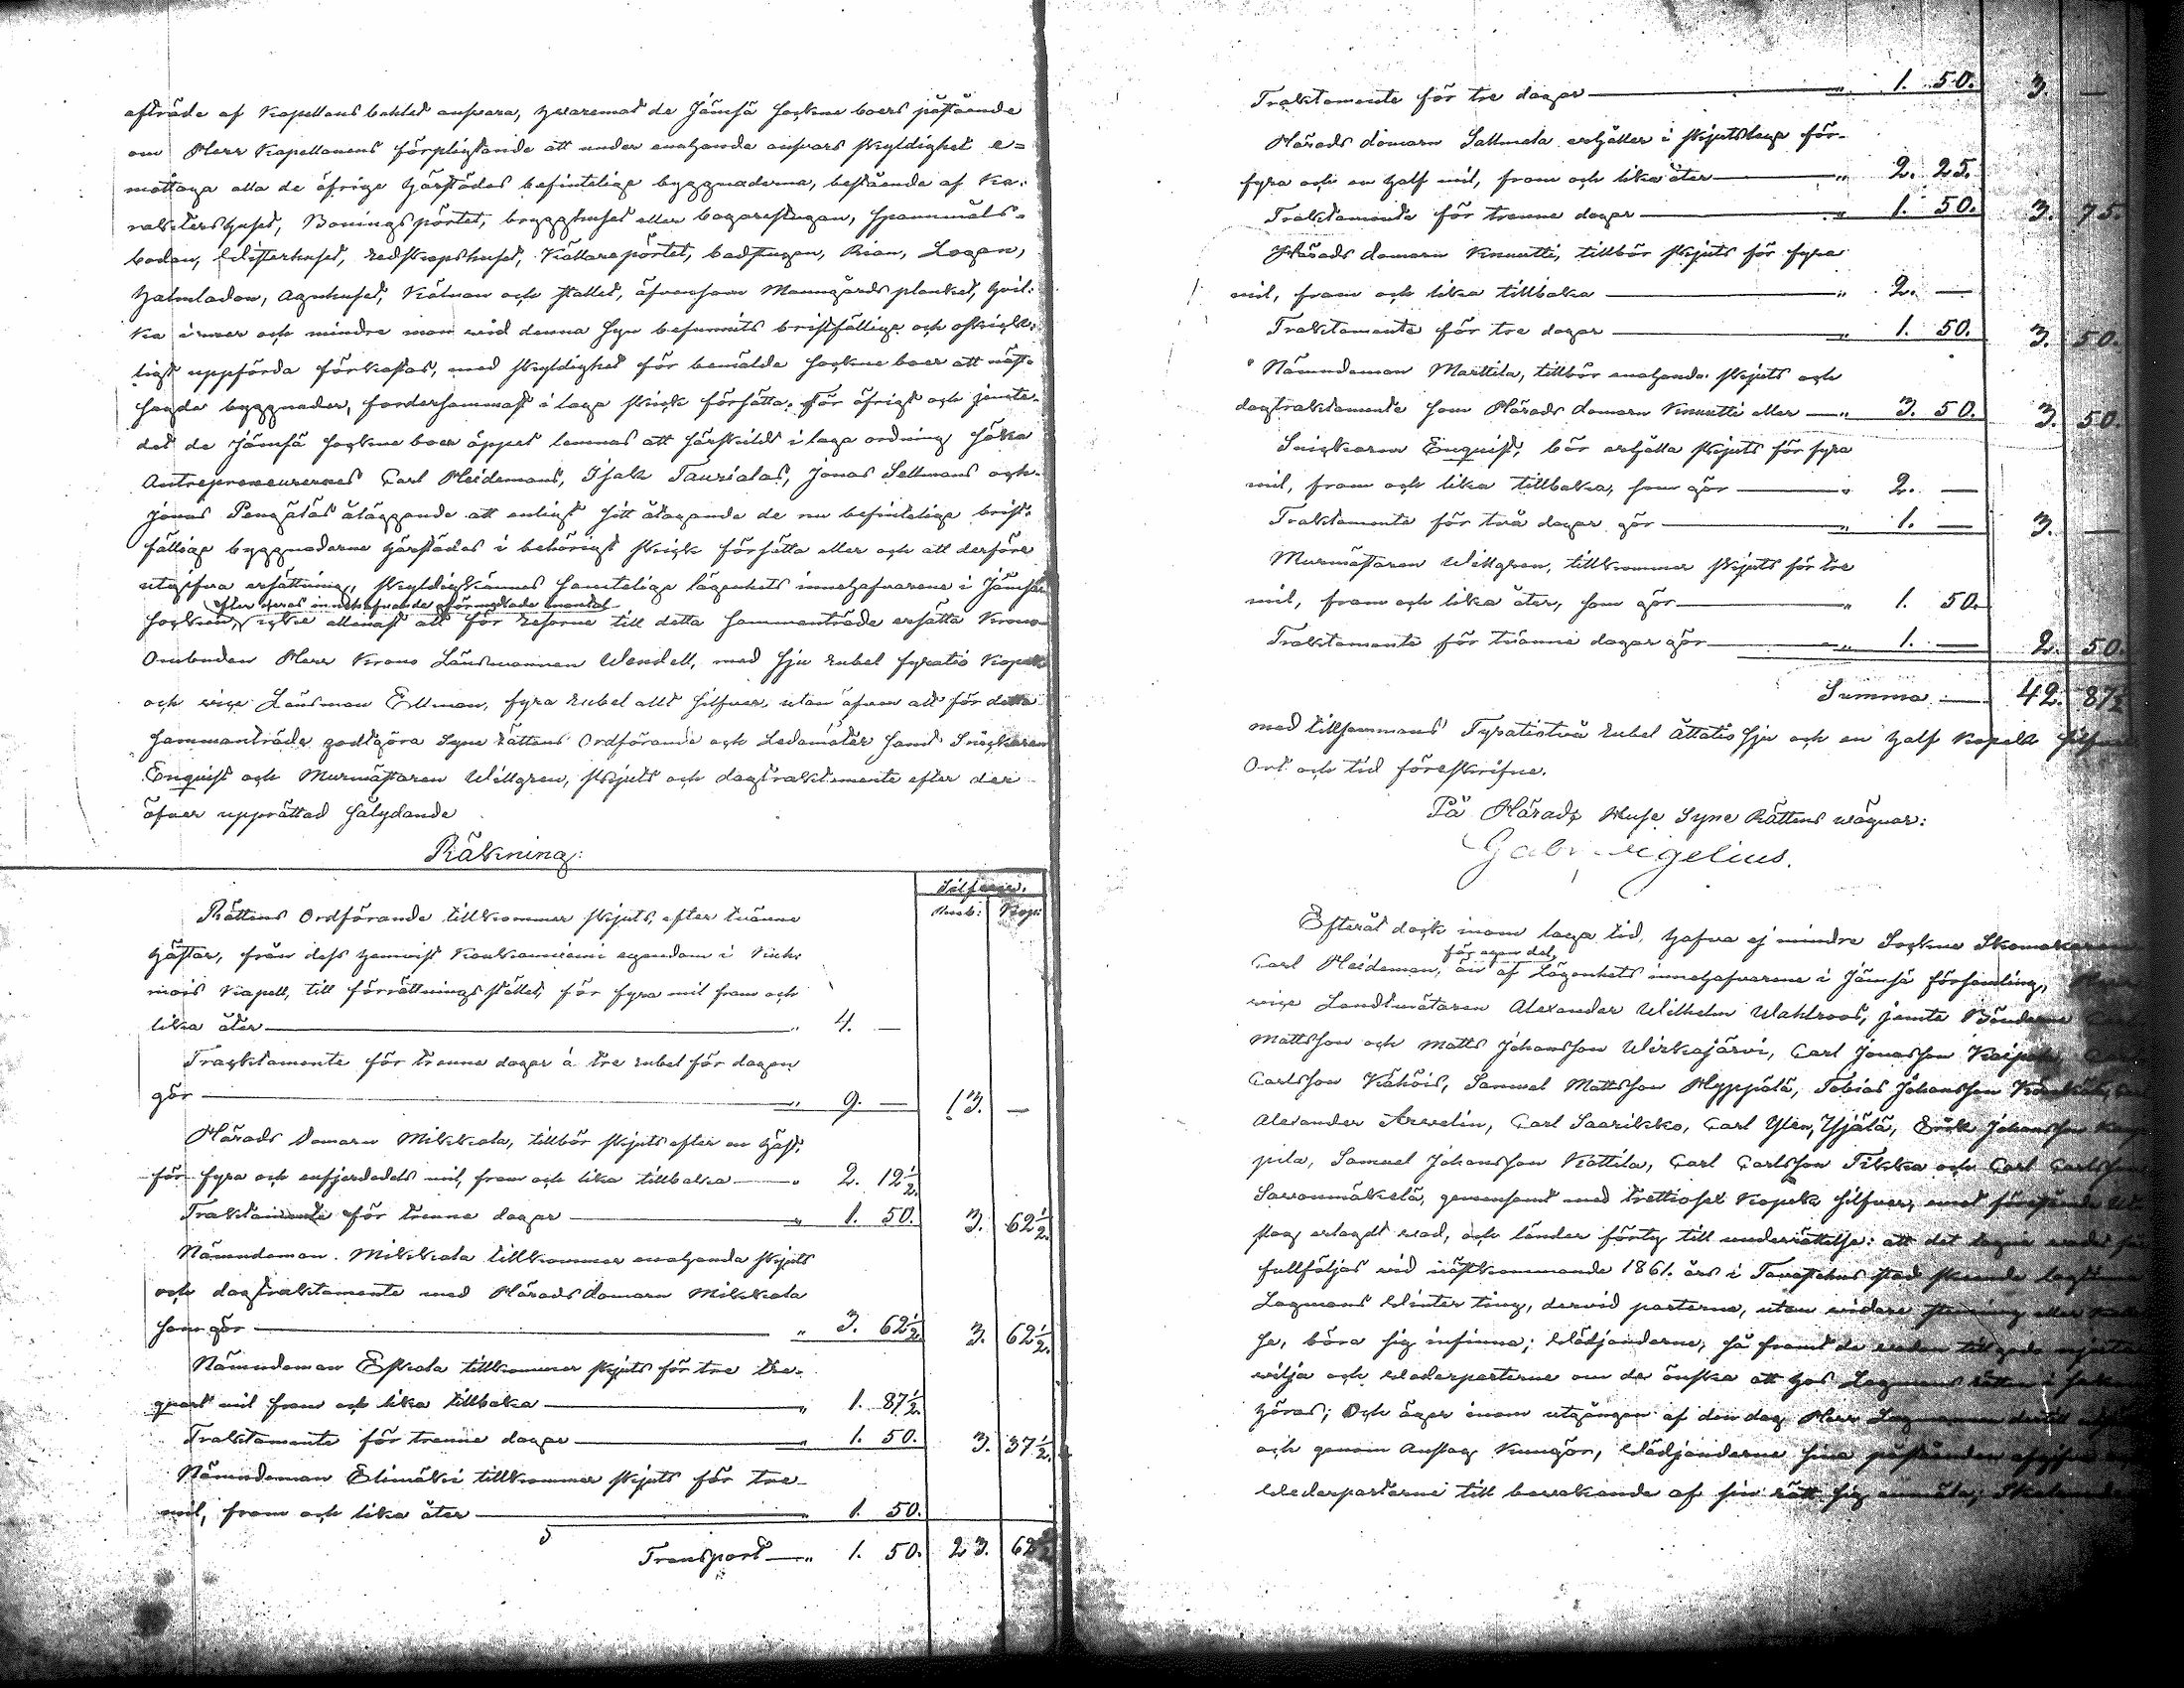 afträde af Kapellans bohlet ansvara, hvaremot de Jämsä Sockne boers påstående
om Herr Kapellanens förpligtande att under enahanda ansvars skyldighet e-
mottaga alla de öfrige härstädes befintelige byggnaderna, bestående af Ka-
raktershuset, Boningspörtet, brygghuset eller bagarestugan, Spannmåls-
boden, Wisterhuset, redskapshuset, Källarepörtet, badstugan, Rian, Logen,
halmladan, agnhuset, Kölnan och stallet, äfvensom Manngårds planket, hvil-
ka immer och mindre man vid denna Syn befunnits bristfällige och oskick-
ligt uppförda förkastas, med skyldighet för bemälde Sockne boer att näst-
sagde byggnader, fordersammast i laga skick försätta. För öfrigt och jemte
det de Jämsä Sockne boer öppet lemnas att särskildt i laga ordning söka
Antrepreneurernes Carl Heidemans, Isak Taurialas, Jonas Sellmans och
Jonas Pengäläs åläggande att enligt sitt åtagande de nu befintelige brist-
fällige byggnaderne härstädes i behörigt skick försätta eller och att derföre
utgifva ersättning, skyldigkännes samtelige lägenhets innehafvarene i Jämsä
efter deras innehafvande förmedlade mantal
Socken, icke allenast att för resorne till detta sammanträde ersätta Krono
Ombuden Herr Krono Länsmannen Wendell, med sju rubel fyratio Kopek
och vice Länsman Ellman, fyra rubel allt silfver, utan äfven att för detta
sammanträde godtgöra Syne Rättens Ordförande och Ledamöter samt Snickaren
Enquist och Murmästaren Willgren, skjuts och dagtraktemente efter der
öfver upprättad sålydande
Räkning:
Silfver.
Rub: Kop:
Rättens Ordförande tillkommer skjuts, efter tvänne
hästar, från dess hemvist Koukanniemi egendom i Kuh-
mois Kapell, till förrättningsstället, för fyra mil fram och
lika åter — " 4. —
Tracktamente för trenne dagar à tre rubel för dagen
gör — " 9. — 13. —
Härads domarn Mikkola, tillbör skjuts efter en häst,
för fyra och enfjerdedels mil, fram och lika tillbaka — " 2. 12½
Traktamente för trenne dagar — " 1. 50. 3. 62½
Nämndeman Mikkola tillkommer enahanda skjuts
och dagtraktamente med Häradsdomarn Mikkola
som gör — " 3. 62½ 3. 62½
Nämndeman Eskola tillkommer skjuts för tre tre-
quart mil fram och lika tillbaka — " 1. 87½
Traktamente för trenne dagar — " 1. 50. 3. 37½
Nämndeman Elimäki tillkommer skjuts för tre
mil, fram och lika åter — " 1. 50.
Transport — " 1. 50. 23. 62½
Traktamente för tre dagar — " 1. 50. 3. —
Härads domarn Sallmela erhåller i skjutslega för
fyra och en half mil, fram och lika åter — " 2. 25.
Traktamente för trenne dagar — " 1. 50. 3. 75.
Härads domarn Knuutti, tillbör skjuts för fyra
mil, fram och lika tillbaka — " 2. —
Traktamente för tre dagar — " 1. 50. 3. 50.
Nämndeman Marttila, tillbör enahanda skjuts och
dagtraktamente som Härads domarn Knuutti eller — " 3. 50. 3. 50.
Snickaren Enquist, bör erhålla skjuts för fyra
mil, fram och lika tillbaka, som gör — " 2. —
Traktamente för två dagar gör — " 1. — 3. —
Murmästaren Willgren, tillkommer skjuts för tre
mil, fram och lika åter, som gör — " 1. 50.
Traktamente för tvänne dagar gör — " 1. — 2. 50.
Summa — 42. 87½
med tillsammans Fyratiotvå rubel åttatio sju och en half kopek silfver
Ort och tid föreskrifne.
På Härads Husе Syne Rättens vägnar:
Gabr. Aegelius.
Efteråt dock inom laga tid, hafva ej mindre Sockne Skomakaren
för egen del,
Carl Heideman, än af Lägenhets innehafvarene i Jämsä församling, Herr
vice Landtmätaren Alexander Wilhelm Wahlroos, jemte Bönderne Carl
Mattsson och Matts Johansson Wirkajärvi, Carl Jonasson Kaipola, Carl
Carlsson Kähöis, Samuel Mattsson Hyppälä, Tobias Johansson
Alexander Arvelin, Carl Saarikko, Carl Ylen, Yijälä, Erik Johansson
pila, Samuel Johansson Kottila, Carl Carlsson Tikka och Carl Carlsson
Savonmäkelä, gemensamt med trettiosex kopek silfver, emot förestående Ut
slag erlagdt vad, och länder förty till underrättelse: att det tagna vadet
fullföljas vid nästkommande 1861. års i Tavastehus stad skeende lagtima
Lagmans Winter ting, dervid parterna, utan vidare stemning eller kallel
se, böra sig infinna; Wädjanderne, så framt de vadet till godo njuta
vilja och Wederparterne om de önska att hos Lagmans Rätten i saken
höras; Och äger inom utgången af den dag Herr Lagmannen dertill
och genom Anslag Kungör, Wädjanderne sina påståenden afgifva
Wederparterne till bevakande af sin rätt sig anmäla;